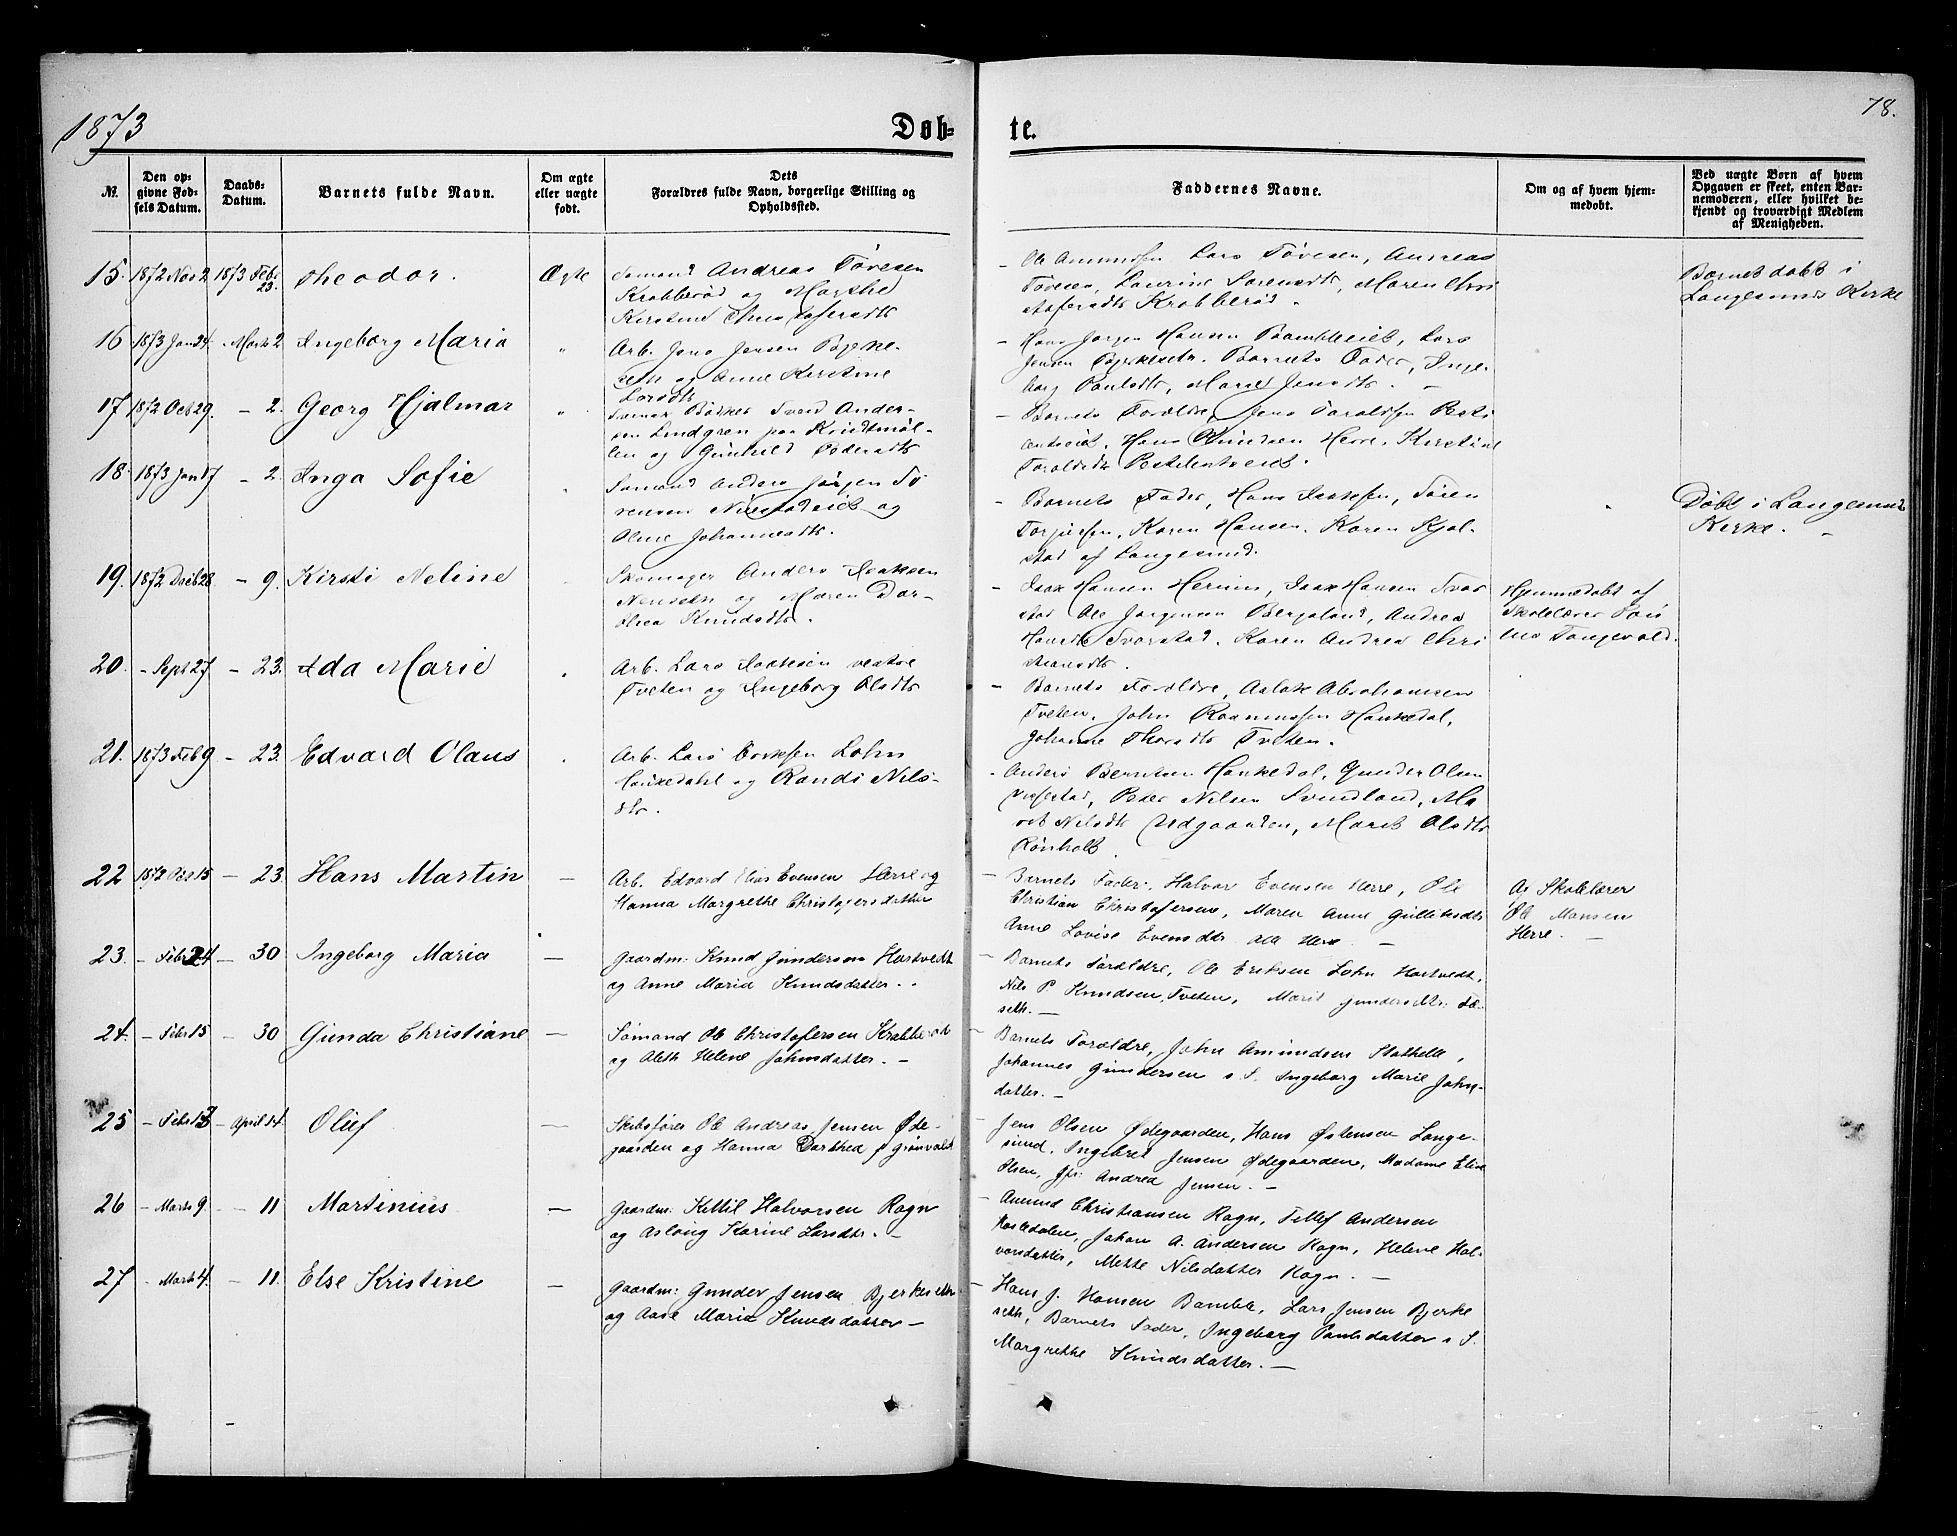 1873
Døb-
te.
78.
№.
Den op-
givne Fød-
sels Datum.
Daabs-
Datum.
Barnets fulde Navn.
Om ægte
eller uægte
født.
Dets
Forældres fulde Navn, borgerlige Stilling og
Opholdssted.
Faddernes Navne.
Om og af hvem hjem-
medøbt.
Ved uægte Børn af hvem
Opgaven er skeet, enten Bar-
nemoderen, eller hvilket be-
kjendt og troværdigt Medlem
af Menigheden.
15. 1872 Nov 2 1873 Feb. 23. Theodor. Ægte
Sømand Andreas Tøvesen
Krabberød og Marthe
Kirstine
– Ole Amundsen Lars Tøvesen, Andreas
Tøvesen, Laurine Sørensdt, Maren Chri
stofersdtr Krabberød.
Barnet døbt i
Langesunds Kirke
16 1873 Jan 24. – Marts 2 Ingeborg Maria "
Arb. Jens Jensen Bjerke-
seth og Anne Kirstine
Larsdtr
– Hans Jørgen Hansen Lars
Jensen Bjerkeseth. Barnets Fader, Inge-
borg Paulsdtr, Jensdtr. –
17 1872 Oct 29. – 2. Georg Hjalmar "
Svensk Svend Ander-
sen Lindgren paa
len og Gunhild Pedersdtr
– Barnets Forældre, Jens Taraldsen
Hans Knudsen Herre, Kirstine
Taraldsdtr
18. 1873 Jan 17 – 2. Inga Sofie
Sømand Anders Jørgen Sø
rensen og
Aline Johannesdtr.
– Barnets Fader, Hans Isaksen, Søren
Torjusen, Karen Hansen, Karen Kjøl-
stad af Langesund.
Døbt i Langesunds
Kirke. –
19. 1872 Decb 28. – 9. Kirsti Neline
Skomager Anders Isaksen
og Maren Dor-
thea Knudsdtr.
– Isak Hansen Isak Hansen Tvor
stad Ole Jørgensen Bergeland, Andrea
Tvorstad. Karen Andrea Chri
stiansdtr.
Hjemmedøbt af
Skolelærer
Tangevald.
20. – Sept 27 – 23. Ida Marie
Arb. Lars Isaksen vestre
Tveten og Ingeborg Olsdtr
– Barnets Forældre, Aslak Abrahamsen
Tveten, John Rasmussen Haukedal,
Johanne Tveten.
21. 1873 Feb 9 – 23. Edvard Olaus
Arb. Lars Eriksen Lohn
Haukedahl og Randi Nils-
dtr.
– Anders Berntsen Haukedal, Gunder Olsen
Peder Nilsen Svindland, Ma
rit Nilsdtr Udgaarden, Marit Olsdtr
Rønholt.
22 1872 15 – 23. Hans Martin –
Arb. Edvard Elias Evensen Herre og
Hanna Margrethe Christofersdatter
– Barnets Fader, Halvor Evensen Herre, Ole
Christian Christofersen, Maren Anne Gulliksdtr
Anne Lovise Evensdtr alle Herre –
Af Skolelærer
Ole Mansen
Herre. –
23. – Febr 24 – 30 Ingeborg Maria –
Gaardm: Knud Gundersen Hartvedt
og Anne Maria Knudsdatter. .
– Barnets Forældre, Ole Eriksen Lohn Hartvedt,
Nils P. Knudsen, Tveten, Marit Gundersdtr:
seth. –
24. – Febr 15 – 30 Gunda Christiane –
Sømand Ole Christofersen Krabberød
og Aleth Helene Johnsdatter. –
– Barnets Forældre, John Amundsen Stathelle,
Johannes Gundersen s. S. Ingeborg Marie John-
datter. –
25 – Febr 13 – April 14. Oluf –
Skibsfører Ole Andreas Jensen Øde-
gaarden og Hanna Dorthea f Grønvald
– Jens Olsen Ødegaarden, Hans Østensen Lange-
sund, Ingebret Jensen Ødegaarden, Madame Elise
Olsen, Andrea Jensen. –
26 – Marts 9 – 11 Martinius –
Gaardm: Kittil Halvorsen Rogn
og Aslaug Karine Larsdtr. –
– Amund Christiansen Rogn, Tellef Andersen
Johan A. Andersen Rogn, Helene Hal-
vorsdatter, Mette Nilsdatter Rogn. –
27 – Marts 4. – 11. Else Kristine –
Gaardm: Gunder Jensen Bjerkeseth
og Aase Maria Knudsdatter –
– Hans J. Hansen Bamble, Lars Jensen Bjerke
seth, Barnets Fader, Ingeborg Paulsdatter s. S.
Margrethe Knudsdatter. –